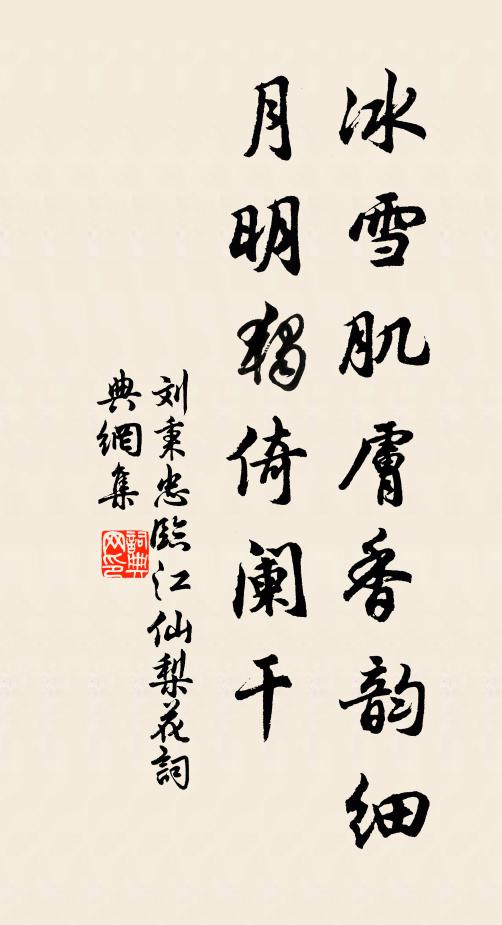 冰雪肌膚香韵细
月明独倚阑干
刘秉忠臨江仙梨花詞
典網集
詞典
网印